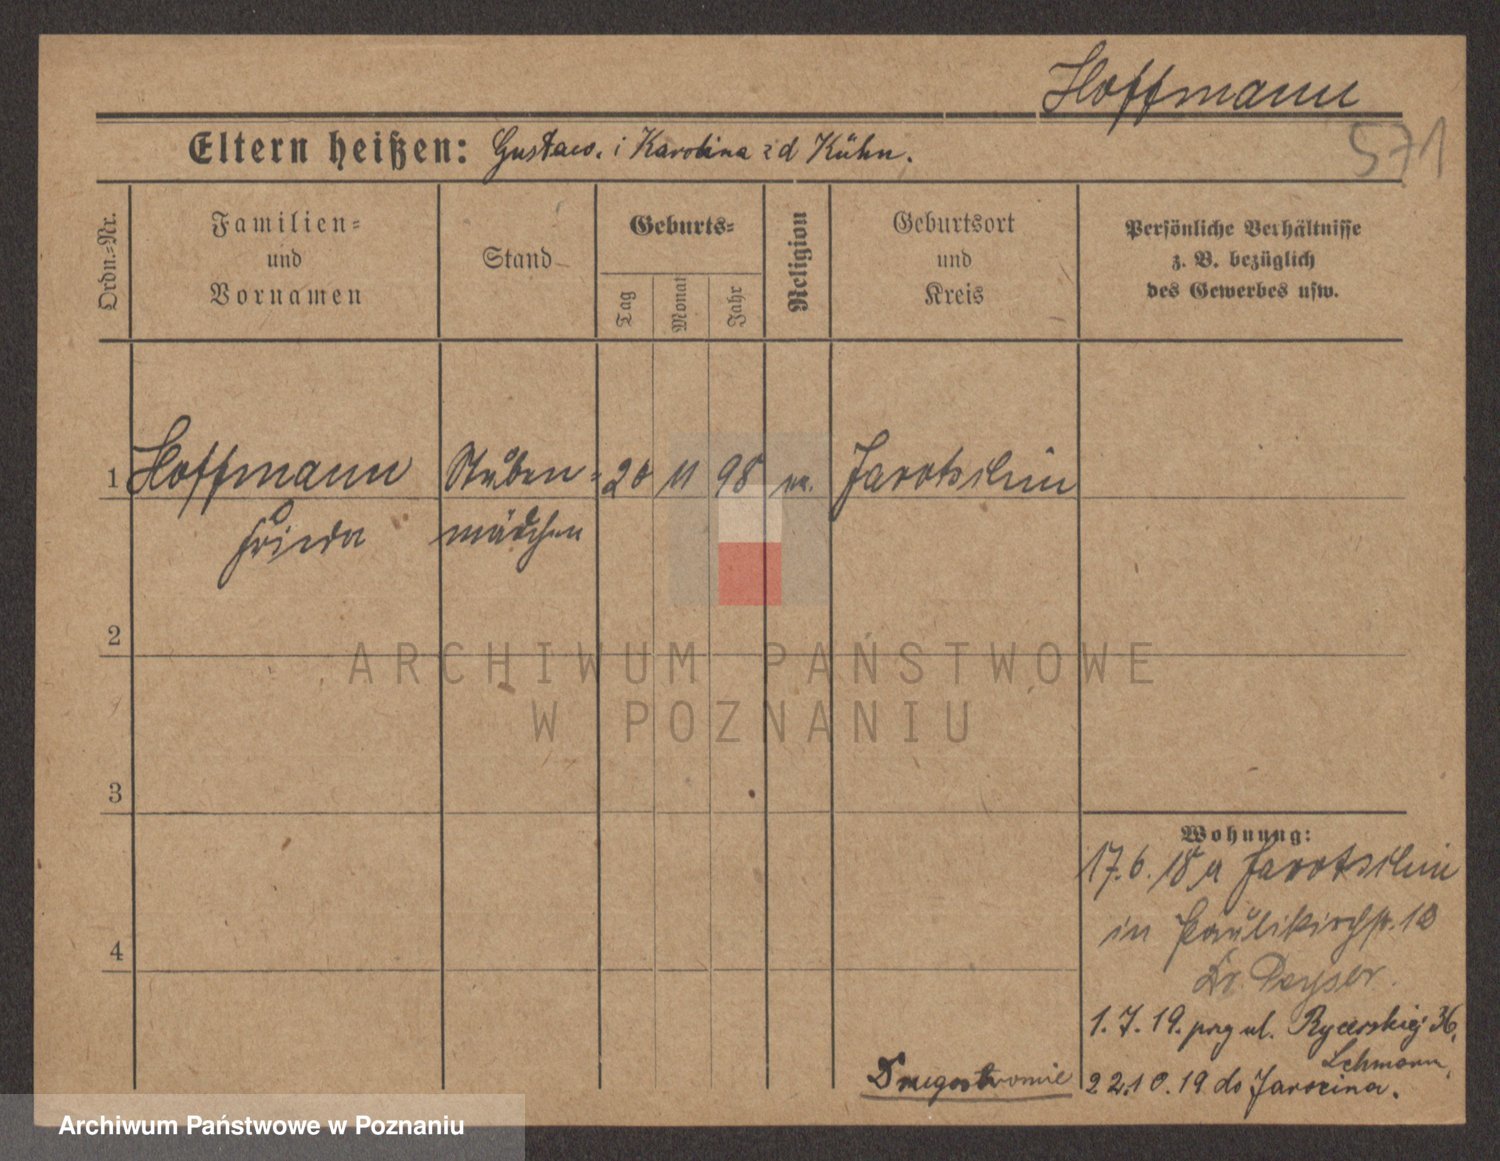 Hoffmann
571
Eltern heißen: Gustaw. i Karolina zd Kühn.
Ordn.-Nr.
Familien-
und
Vornamen
Stand
Geburts-
Tag
Monat
Jahr
Religion
Geburtsort
und
Kreis
Persönliche Verhältnisse
z. B. bezüglich
des Gewerbes usw.
1 Hoffmann Stuben- 20 11 98 Jarotschin
Frieda mädchen
2
3
4
ARCHIWUM PAŃSTWOWE
W POZNANIU
Wohnung:
17.6.18 a Jarotschin
in Paulikirchstr. 10
Dr.
1.7.19. prz ul. Rycerskiej 36,
Lehmann,
Drugostronnie 22.10.19 do Jarocina.
Archiwum Państwowe w Poznaniu